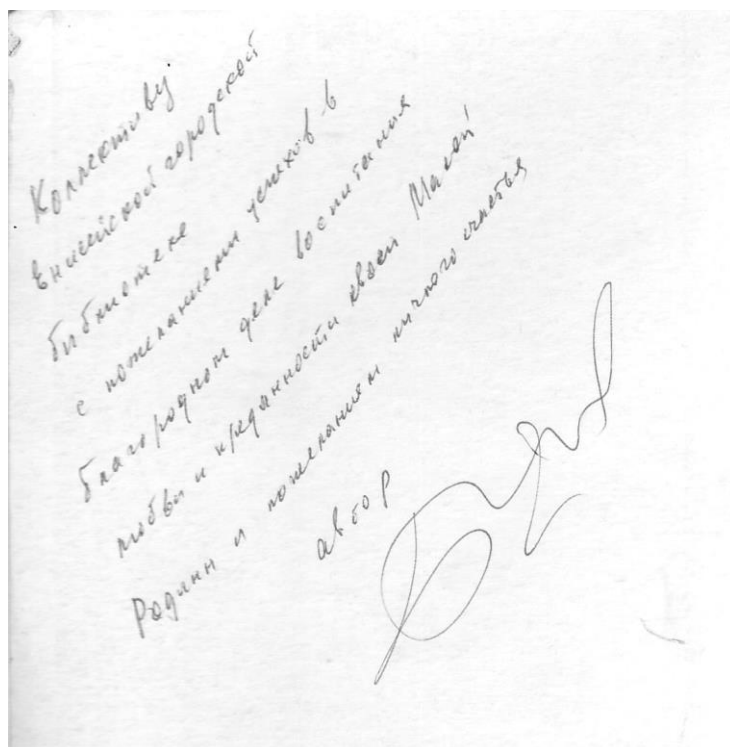 Коллективу
Енисейской городской
библиотеке
с пожеланиями успехов в
благородном деле воспитания
любви и преданности своей Малой
Родины и пожеланием личного счастья
автор